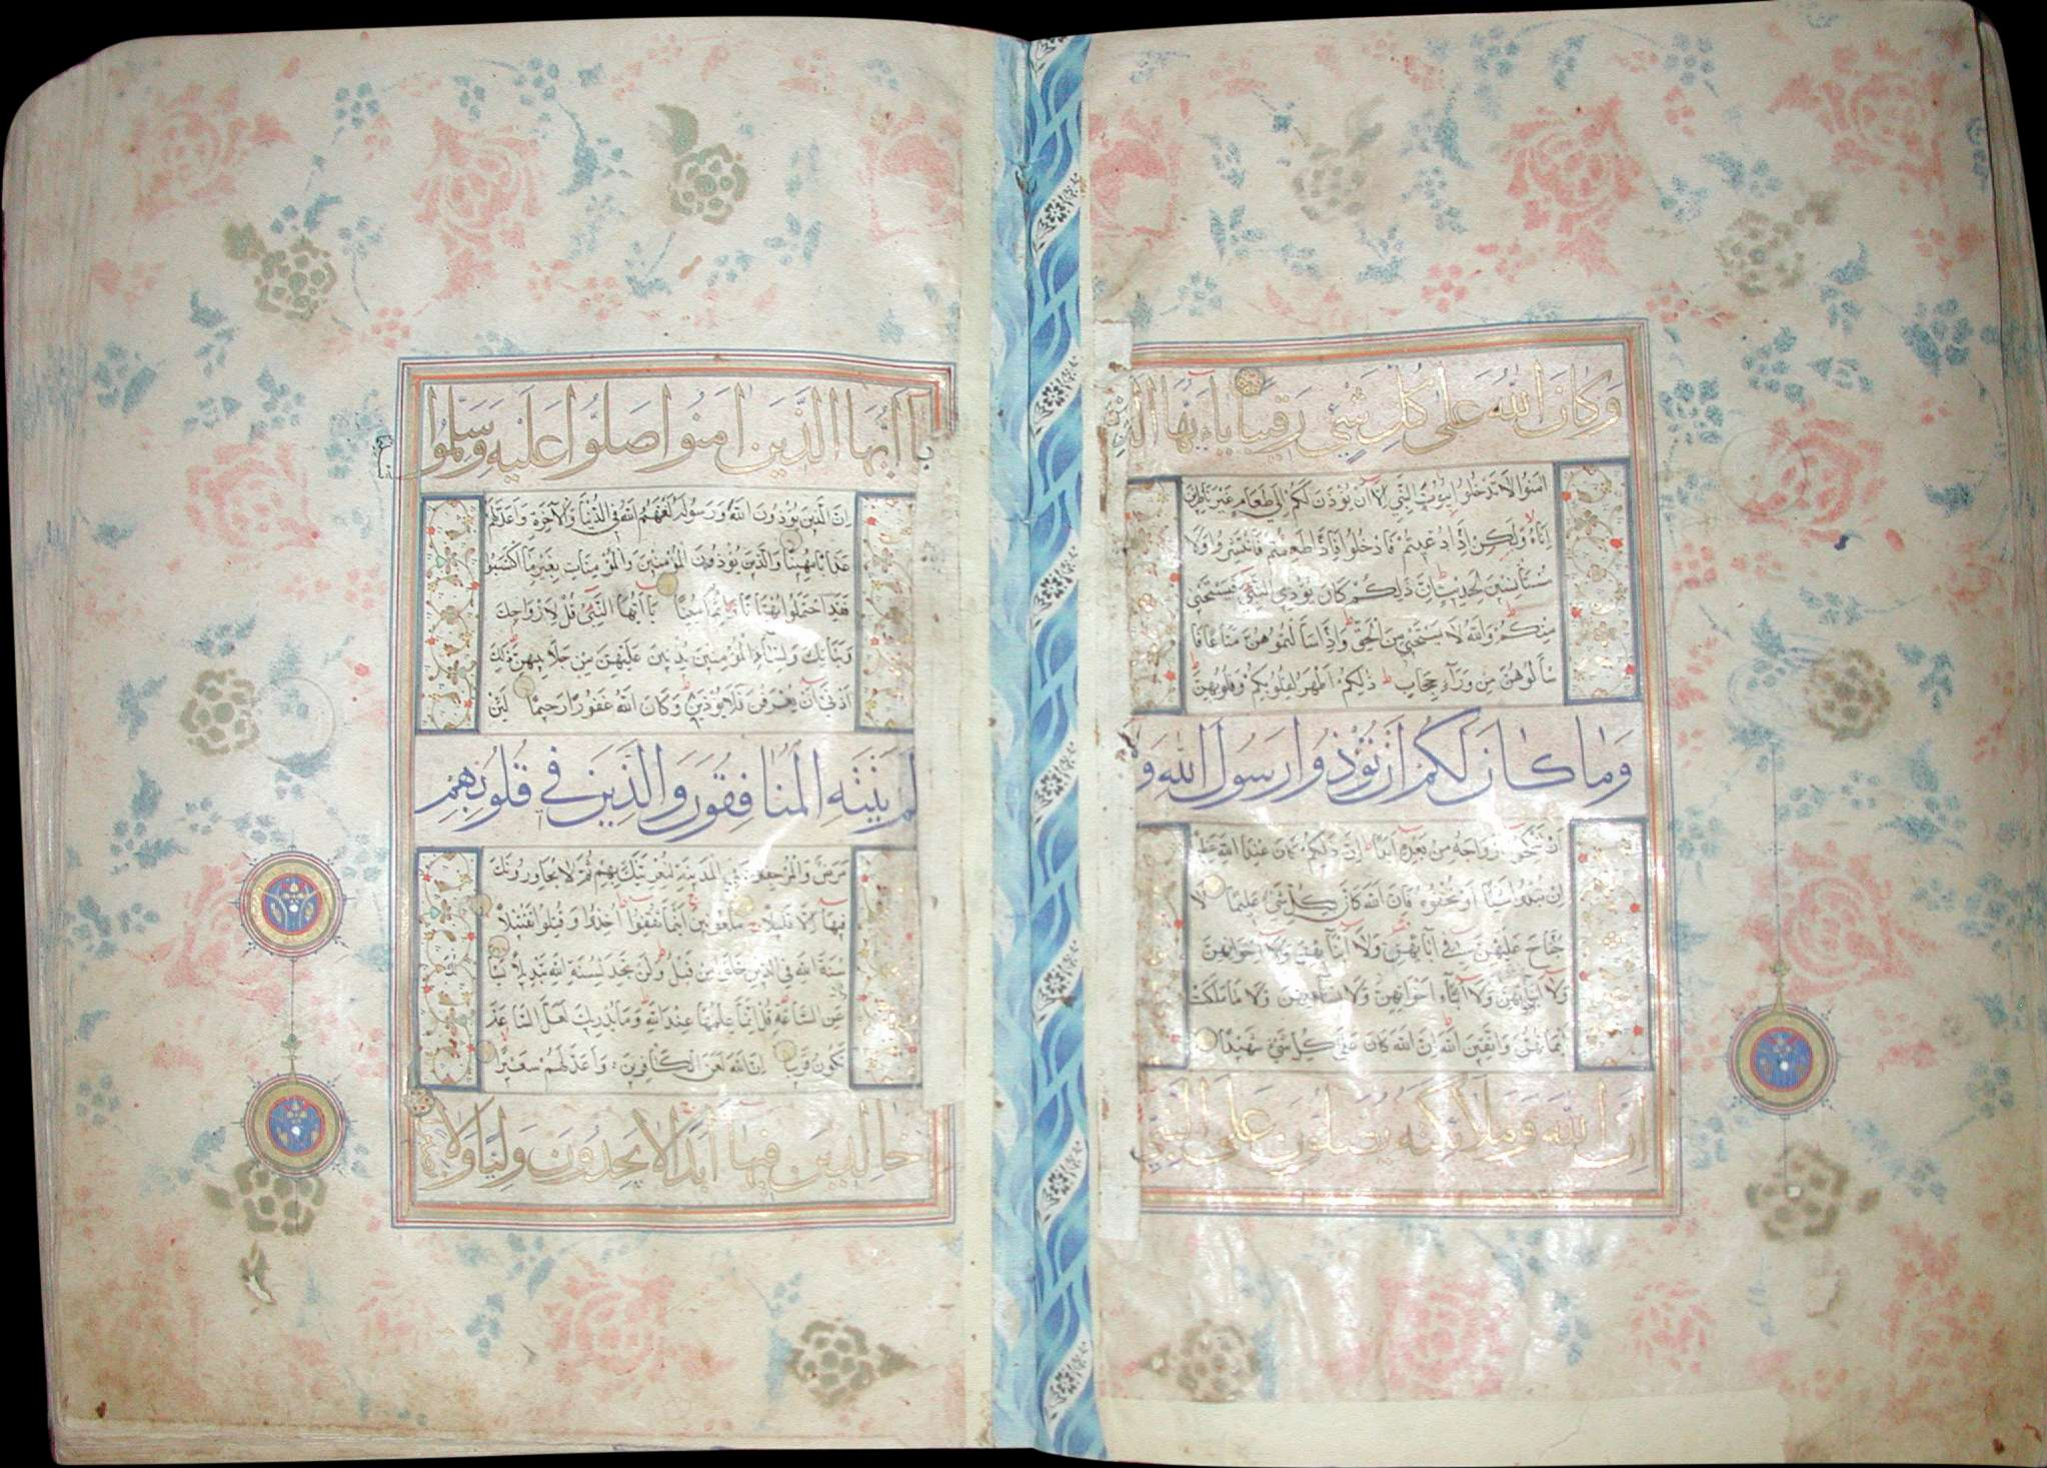 وَكَانَ اللهُ عَلَى كُلِّ شَيْءٍ رَقِيبًا يَاءَيُّهَا الَّذِينَ
اٰمَنُوا لَا تَدْخُلُوا بُيُوتَ النَّبِيِّ اِلَّا اَنْ يُؤْذَنَ لَكُمْ اِلَى طَعَامٍ غَيْرَ نَاظِرِينَ
اِنَاهُ وَلَكِنْ اِذَا دُعِيتُمْ فَادْخُلُوا فَاِذَا طَعِمْتُمْ فَانْتَشِرُوا وَلَا
مُسْتَأْنِسِينَ لِحَدِيثٍ اِنَّ ذَلِكُمْ كَانَ يُؤْذِي النَّبِيَّ فَيَسْتَحْيِي
مِنْكُمْ وَاللهُ لَا يَسْتَحْيِي مِنَ الْحَقِّ وَاِذَا سَاَلْتُمُوهُنَّ مَتَاعًا فَا
سْأَلُوهُنَّ مِنْ وَرَآءِ حِجَابٍ ذَلِكُمْ اَطْهَرُ لِقُلُوبِكُمْ وَقُلُوبِهِنَّ
وَمَا كَانَ لَكُمْ اَنْ تُؤْذُوا رَسُولَ اللهِ وَلَا
اَنْ تَنْكِحُوا اَزْوَاجَهُ مِنْ بَعْدِهِ اَبَدًا اِنَّ ذَلِكُمْ كَانَ عِنْدَ اللهِ عَظِيمًا
اِنْ تُبْدُوا شَيْئًا اَوْ تُخْفُوهُ فَاِنَّ اللهَ كَانَ بِكُلِّ شَيْءٍ عَلِيمًا لَا
جُنَاحَ عَلَيْهِنَّ فِي اٰبَآئِهِنَّ وَلَا اَبْنَآئِهِنَّ وَلَا اِخْوَانِهِنَّ
وَلَا اَبْنَآءِ اِخْوَانِهِنَّ وَلَا نِسَآئِهِنَّ وَلَا مَا مَلَكَتْ
اَيْمَانُهُنَّ وَاتَّقِينَ اللهَ اِنَّ اللهَ كَانَ عَلَى كُلِّ شَيْءٍ شَهِيدًا
اِنَّ اللهَ وَمَلَائِكَتَهُ يُصَلُّونَ عَلَى النَّبِيِّ
يَا اَيُّهَا الَّذِينَ اٰمَنُوا صَلُّوا عَلَيْهِ وَسَلِّمُوا
اِنَّ الَّذِينَ يُؤْذُونَ اللهَ وَرَسُولَهُ لَعَنَهُمُ اللهُ فِي الدُّنْيَا وَالْاٰخِرَةِ وَاَعَدَّ لَهُمْ
عَذَابًا مُهِينًا وَالَّذِينَ يُؤْذُونَ الْمُؤْمِنِينَ وَالْمُؤْمِنَاتِ بِغَيْرِ مَا اكْتَسَبُوا
فَقَدِ احْتَمَلُوا بُهْتَانًا وَاِثْمًا مُبِينًا يَا اَيُّهَا النَّبِيُّ قُلْ لِاَزْوَاجِكَ
وَبَنَاتِكَ وَنِسَآءِ الْمُؤْمِنِينَ يُدْنِينَ عَلَيْهِنَّ مِنْ جَلَابِيبِهِنَّ ذَلِكَ
اَدْنَى اَنْ يُعْرَفْنَ فَلَا يُؤْذَيْنَ وَكَانَ اللهُ غَفُورًا رَحِيمًا لَئِنْ
لَمْ يَنْتَهِ الْمُنَافِقُونَ وَالَّذِينَ فِي قُلُوبِهِمْ
مَرَضٌ وَالْمُرْجِفُونَ فِي الْمَدِينَةِ لَنُغْرِيَنَّكَ بِهِمْ ثُمَّ لَا يُجَاوِرُونَكَ
فِيهَا اِلَّا قَلِيلًا مَلْعُونِينَ اَيْنَمَا ثُقِفُوا اُخِذُوا وَقُتِّلُوا تَقْتِيلًا
سُنَّةَ اللهِ فِي الَّذِينَ خَلَوْا مِنْ قَبْلُ وَلَنْ تَجِدَ لِسُنَّةِ اللهِ تَبْدِيلًا
عَنِ السَّاعَةِ قُلْ اِنَّمَا عِلْمُهَا عِنْدَ اللهِ وَمَا يُدْرِيكَ لَعَلَّ السَّاعَةَ
تَكُونُ قَرِيبًا اِنَّ اللهَ لَعَنَ الْكَافِرِينَ وَاَعَدَّ لَهُمْ سَعِيرًا
خَالِدِينَ فِيهَا اَبَدًا لَا يَجِدُونَ وَلِيًّا وَلَا